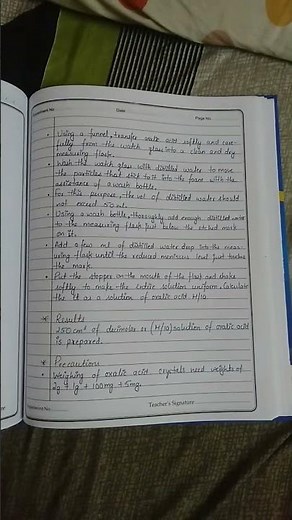 Experiment No.
Date
Page No.
• Using a funnel, transfer oxalic acid softly and care-
fully from the watch glass into a clean and dry
measuring flask.
• Wash the watch glass with distilled water to move
the particles that stick to it into the form with the
assistance of a wash bottle.
• For this purpose, the vol of distilled water should
not exceed 50 cc.
• Using a wash bottle, thoroughly add enough distilled water
to the measuring flask just below the etched mark
on it.
• Add a few ml of distilled water drop into the meas-
uring flask until the reduced meniscus level just touches
the mark.
• Put the stopper on the mouth of the flask and shake
softly to make the entire solution uniform. Calculate
the it as a solution of oxalic acid M/10
* Results
250 cm³ of decimolar or (M/10) solution of oxalic acid
is prepared.
* Precautions
• Weighing of oxalic acid crystals need weights of
2g + 1g + 100mg + 5mg.
Teacher's Signature